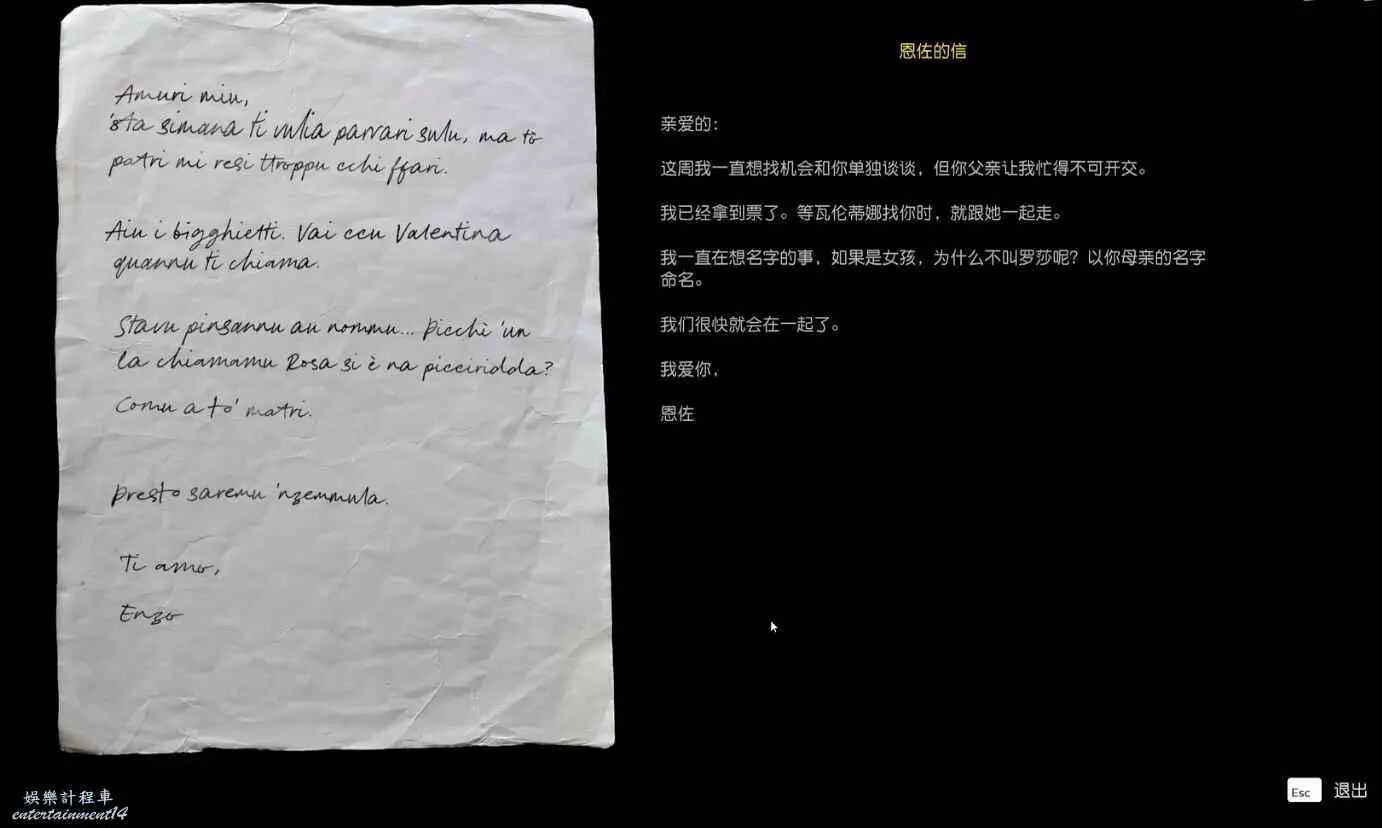 Amuri miu,
'sta simana ti vulia parrari sulu, ma tò
patri mi resi ttroppu cchi ffari.
Aiu i bigghietti. Vai ccu Valentina
quannu ti chiama.
Stavu pinsannu au nommu... Picchì 'un
la chiamamu Rosa si è na picciridda?
Comu a to' matri.
Presto saremu 'nzemmula.
Ti amo,
Enzo
恩佐的信
亲爱的：
这周我一直想找机会和你单独谈谈，但你父亲让我忙得不可开交。
我已经拿到票了。等瓦伦蒂娜找你时，就跟她一起走。
我一直在想名字的事，如果是女孩，为什么不叫罗莎呢？以你母亲的名字
命名。
我们很快就会在一起了。
我爱你，
恩佐
娛樂計程車
entertainment14
Esc 退出